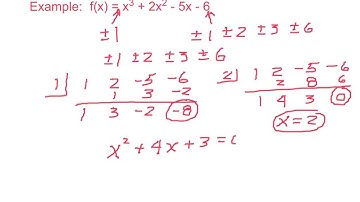 Example: f(x) = x³ + 2x² - 5x - 6
±1 ±1 ±2 ±3 ±6
±1 ±2 ±3 ±6
1| 1 2 -5 -6
1 3 -2
1 3 -2 -8
2| 1 2 -5 -6
2 8 6
1 4 3 0
x = 2
x² + 4x + 3 = 0